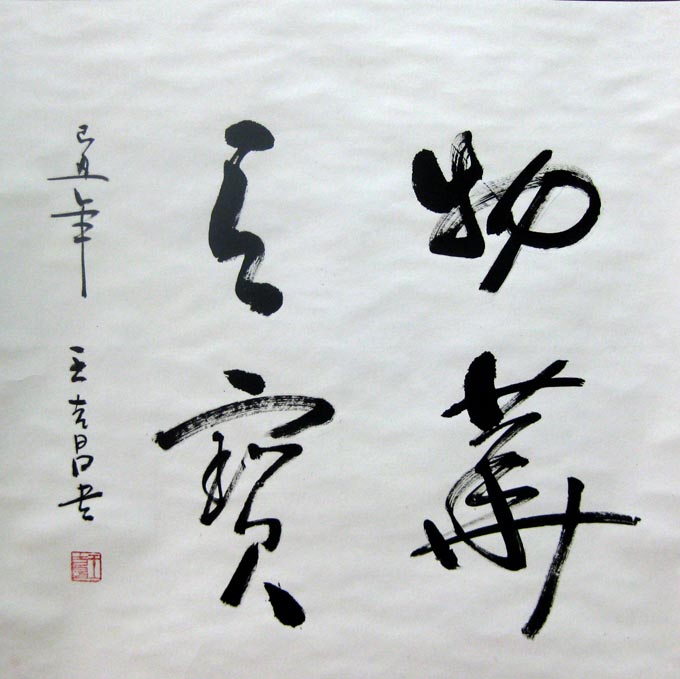 物華
天寶
己丑年 王 昌书